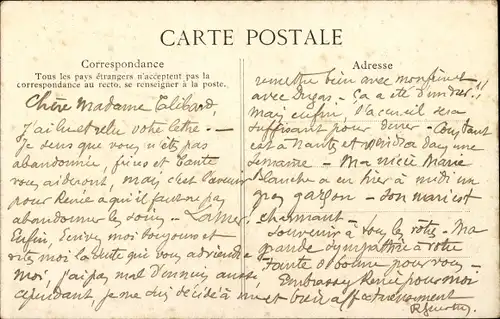 CARTE POSTALE
Correspondance
Tous les pays étrangers n'acceptent pas la
correspondance au recto, se renseigner à la poste.
Chère Madame
J'ai lu et relu votre lettre. —
Je sens que vous n'êtes pas
abandonnée, frères et tante
vous aideront, mais c'est l'avenir
pour Renée à qui il faut ne pas
abandonner le
Enfin, Ecrivez moi toujours et
dites moi la suite que vous
moi, j'ai pas mal d'ennuis aussi,
cependant, je me suis décidé à me
Adresse
remettre bien avec mon
avec — ça a été dur !!
Mais enfin, l'accueil sera
suffisant pour durer — Constant
est à Nantes et viendra dans une
semaine — Ma nièce Marie
Blanche a eu hier à midi un
gros garçon — Son mari est
charmant —
Souvenir à tous les vôtres — Ma
grande sympathie à votre
tante si bonne pour vous —
Embrassez Renée pour moi
et bien affectueusement